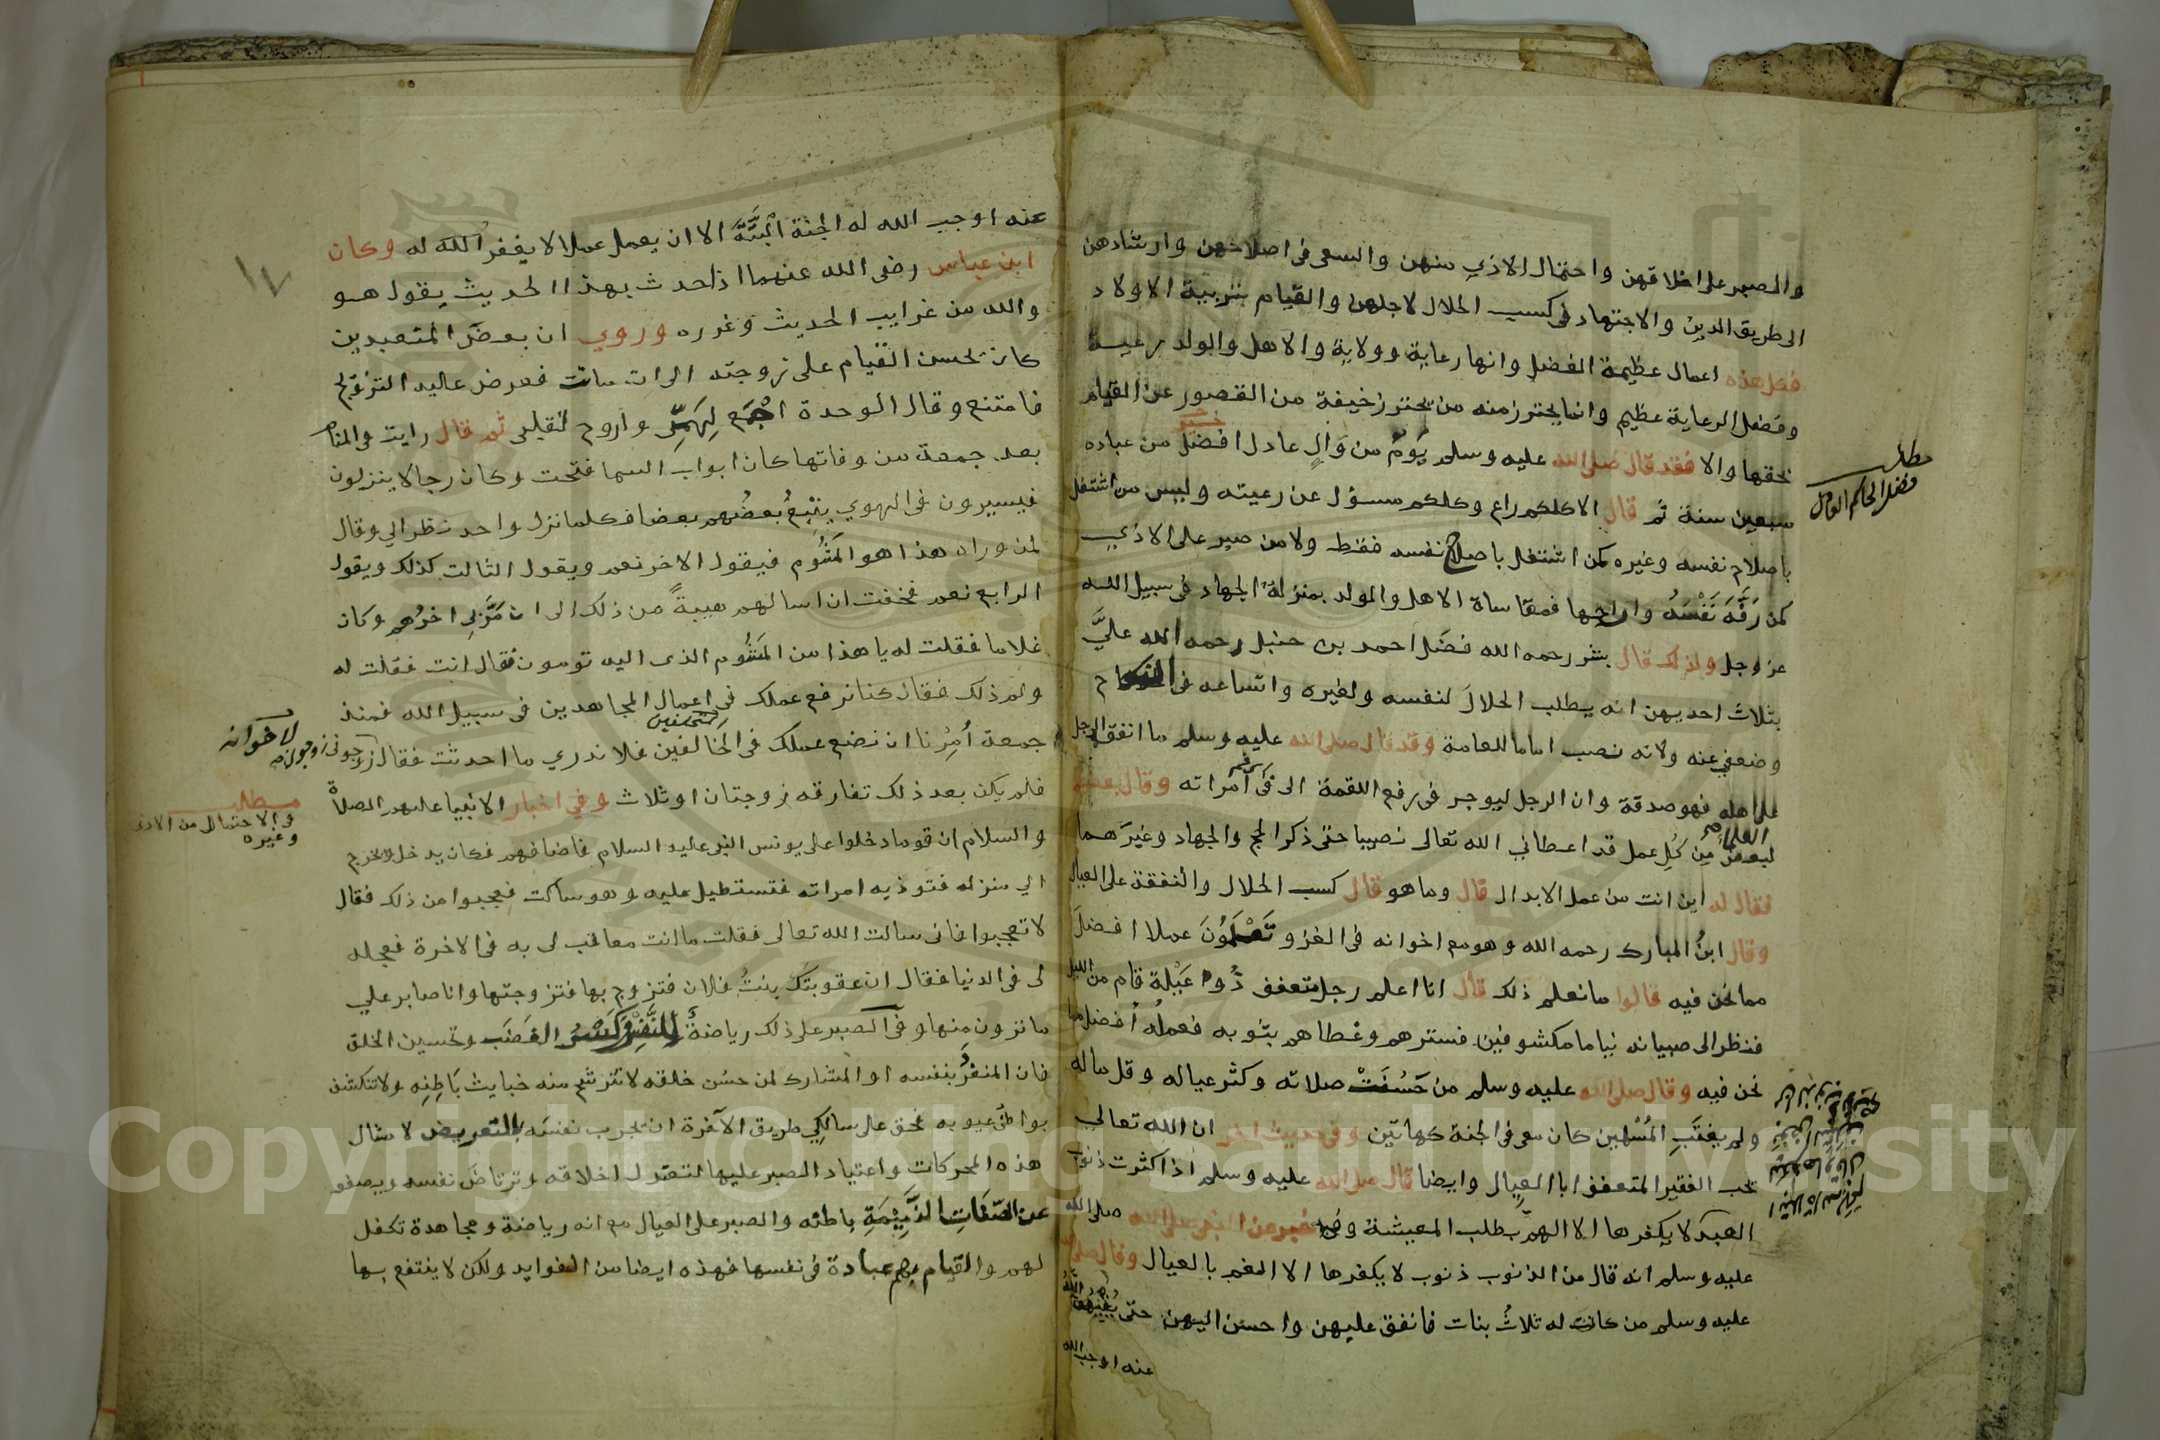 والصبر على اخلاقهن واحتمال الاذي منهن والسعي فى اصلاحهن وارشادهن
الى طريق الدين والاجتهاد فى كسب الحلال لاجلهن والقيام بتربية الاولاد
فكل هذه اعمال عظيمة الفضل وانها رعاية وولاية والاهل والولد رعية
وفضل الرعاية عظيم وانما يحترز منه من يحترز خيفة من القصور عن القيام
بحقها والا فقد قال صلى الله عليه وسلم يوم من وال عادل افضل من عباده
سبعين سنة ثم قال الا كلكم راع وكلكم مسؤل عن رعيته وليس من اشتغل
باصلاح نفسه وغيره كمن اشتغل باصلاح نفسه فقط ولا من صبر على الاذي
كمن رَفَّهَ نَفْسَهُ واراحها فمقاساة الاهل والولد بمنزلة الجهاد فى سبيل الله
عز وجل ولذلك قال بشر رحمه الله فضل احمد بن حنبل رحمه الله عليَّ
بثلاث احديهن انه يطلب الحلال لنفسه ولغيره واتساعه فى النكاح
وضعفي عنه ولانه نصب اماما للعامة وقد قال صلى الله عليه وسلم ما انفق الرجل
على اهله فهو صدقة وان الرجل ليوجر فى رفع اللقمة الى فى امراته وقال بعضهم
لبعض العلماء من كل عمل قد اعطاني الله تعالى نصيبا حتى ذكر الحج والجهاد وغيرهما
فقال له اين انت من عمل الابدال قال وما هو قال كسب الحلال والنفقة على العيال
وقال ابن المبارك رحمه الله وهو مع اخوانه فى الغزو تَعْلَمُونَ عملا افضل
مما نحن فيه قالوا ما نعلم ذلك قال انا اعلم رجل متعفف ذُوا عَيْلة قام من الليل
فنظر الى صبيانه نياما مكشوفين فسترهم وغطاهم بثوبه فعمله افضل مما
نحن فيه وقال صلى الله عليه وسلم من حَسُنَتْ صلاته وكثر عياله وقل ماله
ولم يغتب المسلمين كان معي فى الجنة كهاتين وفي حديث اخر ان الله تعالى
يحب الفقير المتعفف ابا العيال وايضا قال صلى الله عليه وسلم اذا كثرت ذنوب
العبد لا يكفرها الا الهم بطلب المعيشة وفيه خبر عن النبي صلى الله صلى الله
عليه وسلم انه قال من الذنوب ذنوب لا يكفرها الا الغم بالعيال وقال صلى الله
عليه وسلم من كانت له ثلاث بنات فانفق عليهن واحسن اليهن حتى يُغْنِيَهُنَّ الله
عنه اوجب الله
مطلب
فضل الحاكم العادل
١٧
عنه اوجب الله له الجنة البَتَّةَ الا ان يعمل عملا لا يغفر الله له وكان
ابن عباس رضى الله عنهما اذا حدث بهذا الحديث يقول هو
والله من غرايب الحديث وغرره وروي ان بعض المتعبدين
كان يحسن القيام على زوجته الى ان ماتت فعرض عليه التزويج
فامتنع وقال الوحدة اجمع لِهَمِّى واروح لقلبى ثم قال رايت فى المنام
بعد جمعة من وفاتها كان ابواب السما فتحت وكان رجالا ينزلون
فيسيرون فى الهوي يتبع بعضهم بعضا فكلما نزل واحد نظر الي وقال
لمن وراه هذا هو المَشُوم فيقول الاخر نعم ويقول الثالث كذلك ويقول
الرابع نعم فخفت ان اسالهم هيبةً من ذلك الى ان مَرَّ بِى اخرُهم وكان
غلاما فقلت له يا هذا من المَشُوم الذى اليه تومون فقال انت فقلت له
ولم ذلك فقال كنا نرفع عملك فى اعمال المجاهدين فى سبيل الله فمنذ
جمعة اُمِرْنا ان نضع عملك فى الخالفين فلا ندري ما احدثت فقال زوجوني زوجوني لاخوانه
فلم يكن بعد ذلك تفارقه زوجتان او ثلاث وفي اخبار الانبيا عليهم الصلاة
والسلام ان قوما دخلوا على يونس النبي عليه السلام فاضافهم فكان يدخل ويخرج
الى منزله فتوذيه امراته فتستطيل عليه وهو ساكت فعجبوا من ذلك فقال
لا تعجبوا فانى سالت الله تعالى فقلت ما انت معاقب لى به فى الاخرة فعجله
لى فى الدنيا فقال ان عقوبتك بنتُ فلان فتزوج بها فتزوجتها وانا صابر علي
ما ترون منها وفى الصبر على ذلك رياضةُ للنفس وكسرُ الغضب وتحسين الخلق
فان المنفرد بنفسه او المشارك لمن حسن خلقه لا تترشح منه خبايث بَاطِنِه ولا تنكشف
بواطن عيوبه فحق على سالكي طريق الآخرة ان يجرب نفسَه بالتعريض لامثال
هذه المحركات واعتياد الصبر عليها لتعتدل اخلاقه وترتاض نفسه ويصفو
عن الصِّفَاتِ الذَّمِيْمَةِ باطنه والصبر على العيال مع انه رياضة ومجاهدة تكفل
لهم والقيام بهم عبادة فى نفسها فهذه ايضا من الفوايد ولكن لا ينتفع بها
مطلب
والاحتمال من الاذى
وغيره